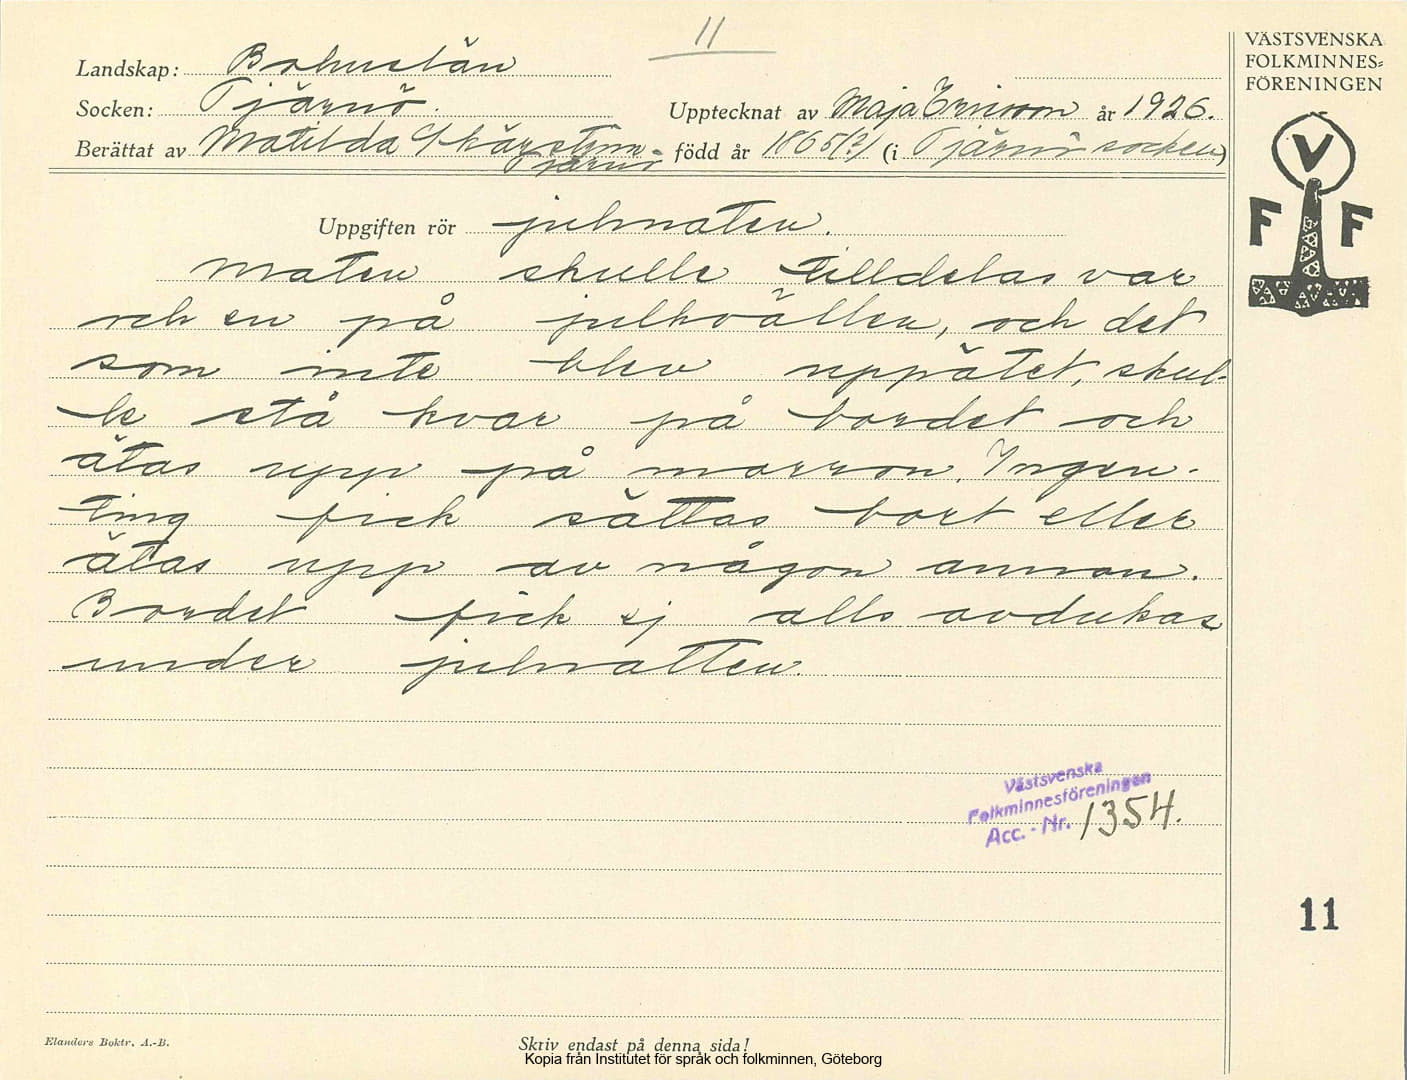 11
Landskap: Bohuslän
Socken: Tjärnö.
Upptecknat av Maja Ericson år 1926.
Berättat av Matilda
Tjärnö
född år 1865(?) (i Tjärnö socken)
VÄSTSVENSKA
FOLKMINNES=
FÖRENINGEN
V
F F
Uppgiften rör julmaten.
Maten skulle tilldelas var
och en på julkvällen, och det
som inte blev uppätet, skul-
le stå kvar på bordet och
ätas upp på morron. Ingen-
ting fick sättas bort eller
ätas upp av någon annan.
Bordet fick ej alls avdukas
under julnatten.
Västsvenska
Folkminnesföreningen
Acc. - Nr. 1354.
11
Elanders Boktr. A.-B.
Skriv endast på denna sida!
Kopia från Institutet för språk och folkminnen, Göteborg